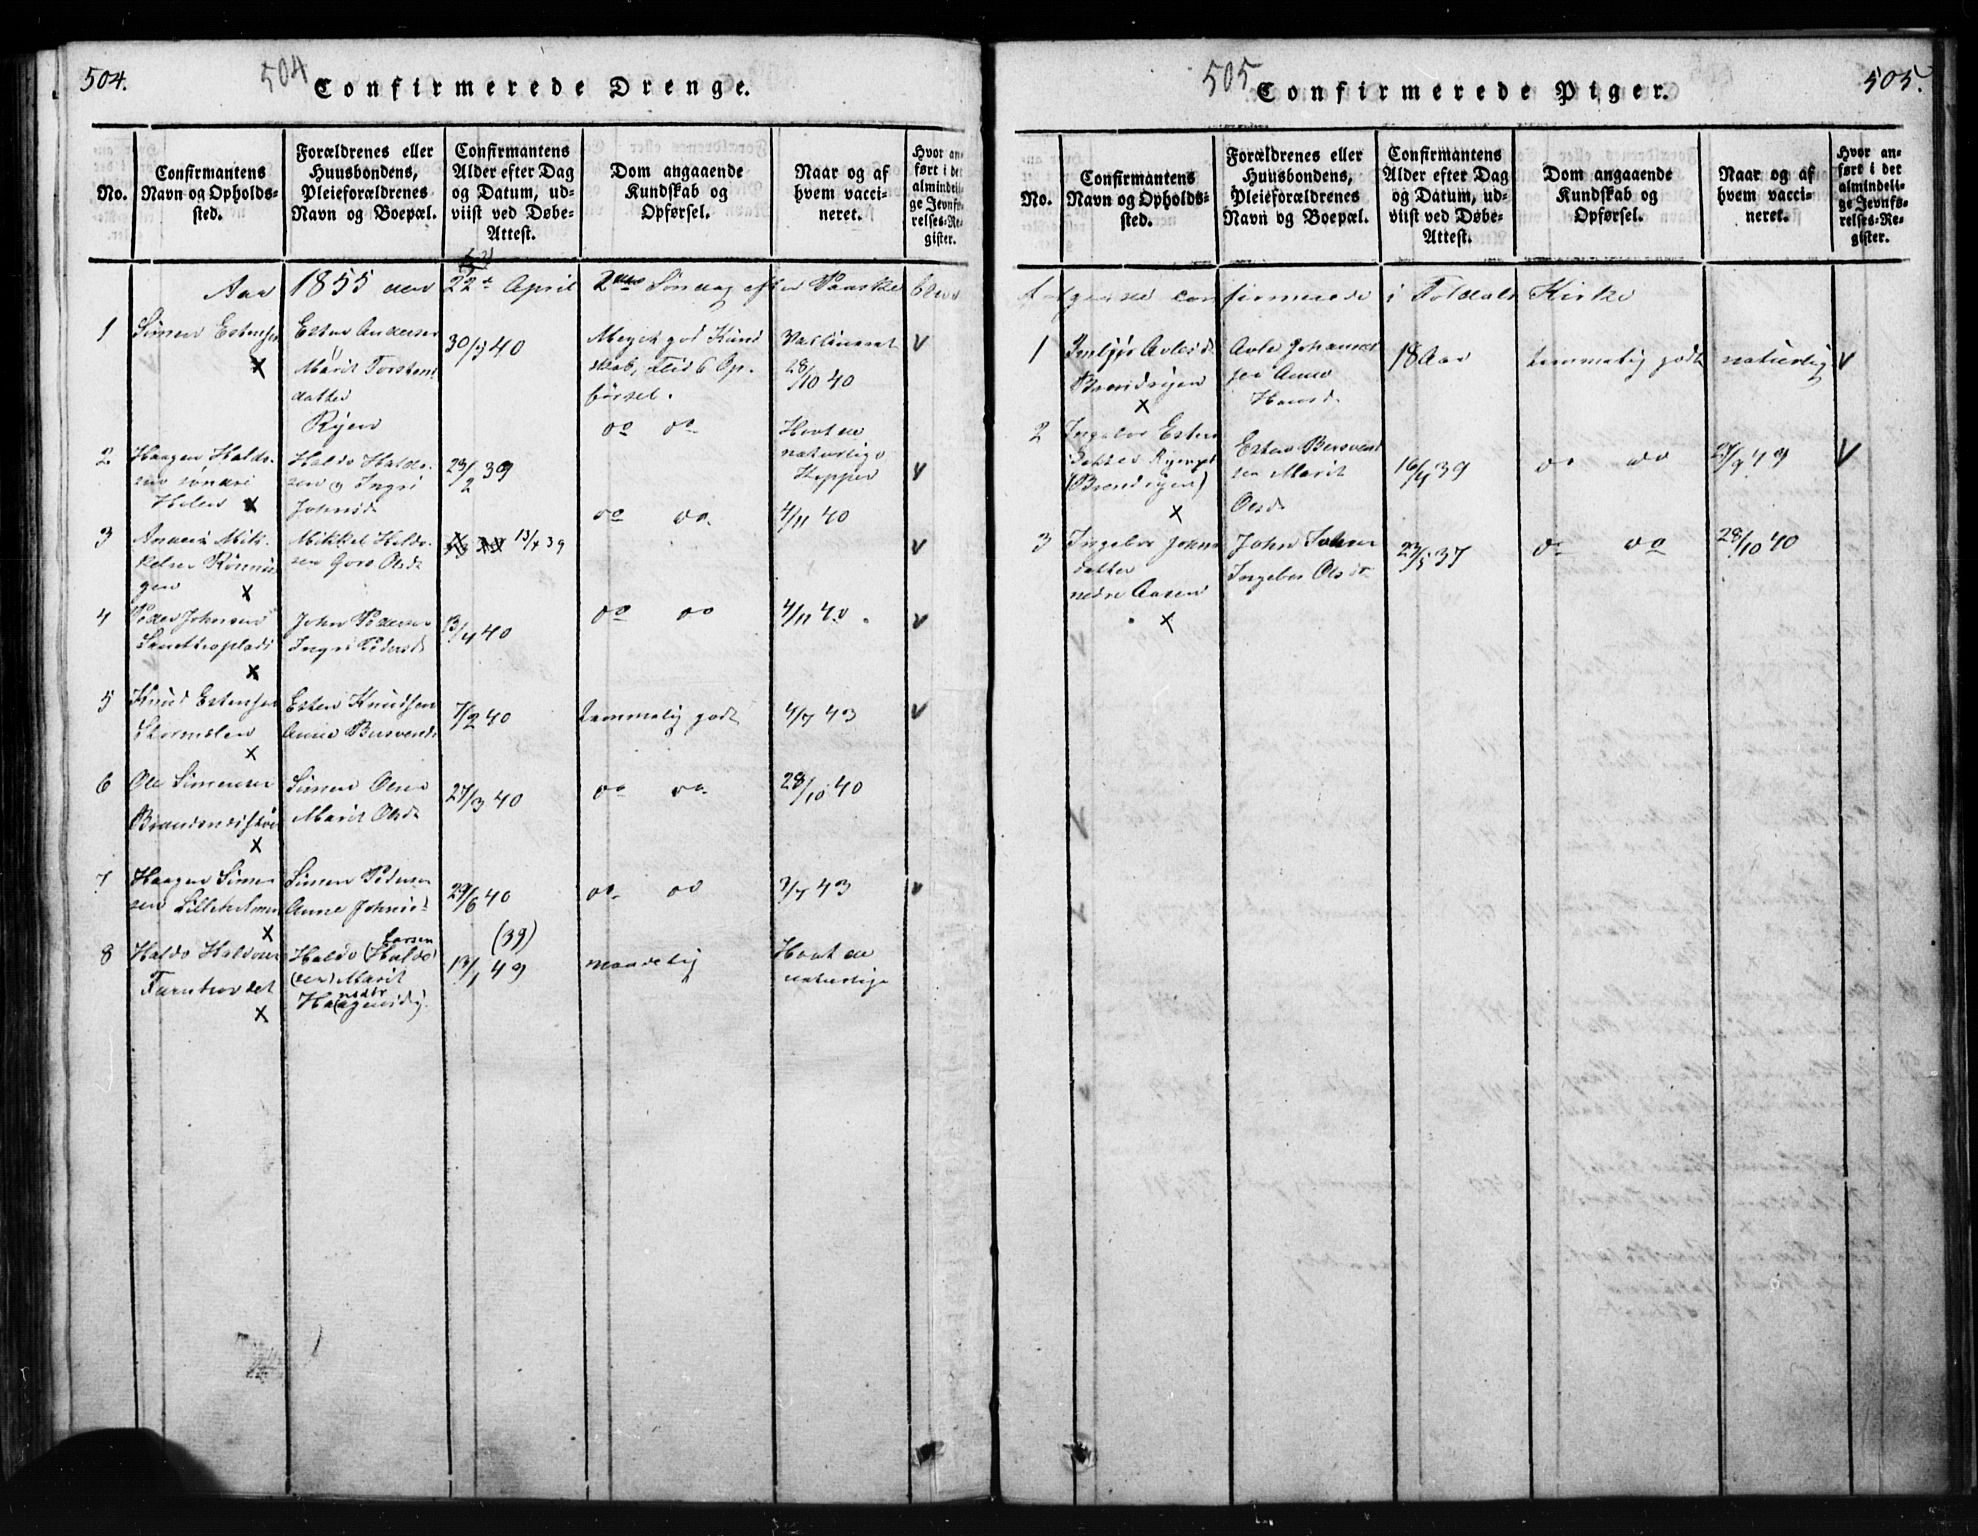 504.
504
Confirmerede Drenge.
No.
Confirmantens
Navn og Opholds-
sted.
Forældrenes eller
Huusbondens,
Pleieforældrenes
Navn og Boepæl.
Confirmantens
Alder efter Dag
og Datum, ud-
viist ved Døbe-
Attest.
Dom angaaende
Kundskab og
Opførsel.
Naar og af
hvem vacci-
neret.
Hvor an-
ført i det
almindeli-
ge Jevnfø-
relses-Re-
gister.
Aar 1855 den 22de April 2den Søndag efter Paaske bleve
1
Simen Estensen
x
Esten Andersen
Marit Torstens
datter
Ryen
30/7 40
Meget god Kund
skab, Flid & Op-
førsel.
Vaccineret
28/10 40
v
2
Haagen Halds-
sen søndre
x
Haldo Haldo-
sen & Ingri
Johnsd
23/2 39
do do
Havt de
naturlige
Kopper
v
3
Mik-
kelsen
gen x
Mikkel Haldo-
sen Olsd
13/7 39
do do.
4/11 40
v
4
Peder Johnsen
x
John Pedersen
Ingri Pedersd
13/4 40
do do
4/11 40.
v
5
Knud Estensen
Stormoen
x
Esten Knudsen
Anne Bersvends
7/2 40
temmelig godt
4/7 43
v
6
Ole Simensen
x
Simen Olsen
Marit Olsd
27/3 40
do do.
28/10 40
7
Haagen Simen
sen Lilleholmen
x
Simen Pedersen
Anne Johnsd
29/6 40
do. do
3/7 43
v
8
Haldo Haldosen
x
Haldo (Haldo
Larsen
sen) Marit
13/1 49
(39)
maadelig
Havt de
naturlige
505
Confirmerede Piger.
505.
No.
Confirmantens
Navn og Opholds-
sted.
Forældrenes eller
Huusbondens,
Pleieforældrenes
Navn og Boepæl.
Confirmantens
Alder efter Dag
og Datum, ud-
viist ved Døbe-
Attest.
Dom angaaende
Kundskab og
Opførsel.
Naar og af
hvem vacci-
neret.
Hvor an-
ført i det
almindeli-
ge Jevnfø-
relses-Re-
gister.
følgende confirmerede i Toldals Kirke
1
x
Johannes
sen Anne
Hansd.
18 Aar
temmelig godt
naturlig
v
2
Ingebor Esten
datter
x
Esten Bersvend
sen Marit
Olsd
16/4 39
do do
27/9 49
v
3
Ingebor Johns
datter
nedre Aasen
x
John
Ingebor Olsdr
23/5 37
do do
28/10 40